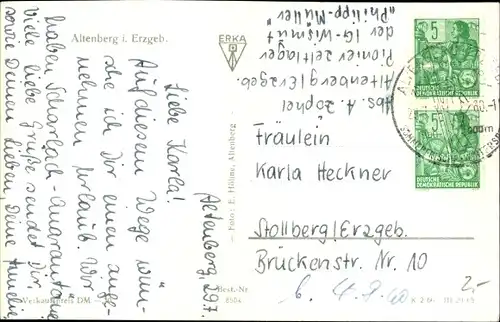 Altenberg i. Erzgeb.
ERKA
Altenberg, 29.7.
Liebe Karla!
Auf diesem Wege wün-
sche ich Dir einen ange-
nehmen Urlaub. Wir
haben Scharlach-Quarantäne
Viele liebe Grüße sendet Dir,
sowie Deinen lieben, Deine
Abs. A. Zophel
Altenberg/Erzgeb.
Pionierzeltlager
der IG-Wismut
"Philipp-Müller"
5
DEUTSCHE
DEMOKRATISCHE REPUBLIK
5
DEUTSCHE
DEMOKRATISCHE REPUBLIK
Fräulein
Karla Heckner
Stollberg/Erzgeb.
Brückenstr. Nr. 10
Foto: E. Höhne, Altenberg
Best.-Nr.
8504
Verkaufspreis DM
25-